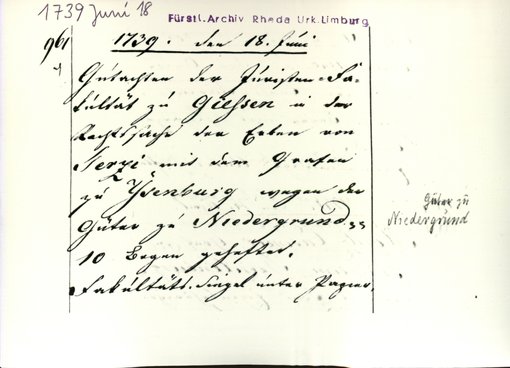 1739 Juni 18
Fürstl. Archiv Rheda Urk. Limburg
961
1739. den 18. Juni
Gutachten der Juristen-Fa-
kultät zu Giessen in der
Rechtssache der Erben von
Terzi mit dem Grafen
zu Ysenburg wegen der
Güter zu Niedergrund,
10 Bogen geheftet.
Fakultäts-Siegel unter Papier.
Güter zu
Niedergrund